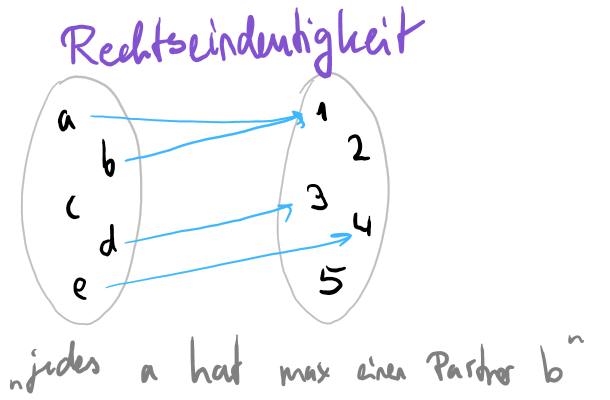 Rechtseindeutigkeit
a 1
b 2
c 3
d 4
e 5
„jedes a hat max einen Partner b"